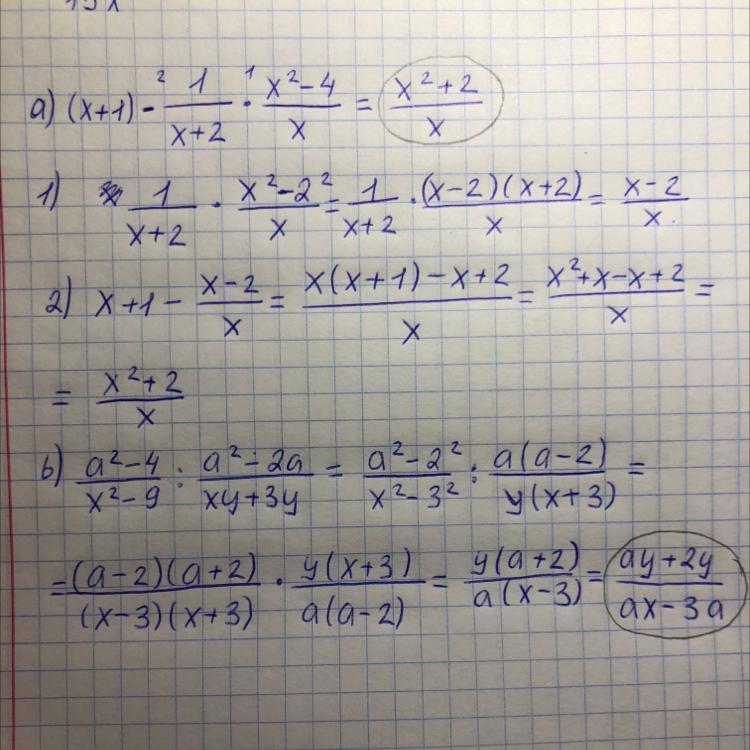 а) (x+1) -² 1/(x+2) ·¹ (x²-4)/x = (x²+2)/x
1) 1/(x+2) · (x²-2²)/x = 1/(x+2) · (x-2)(x+2)/x = (x-2)/x.
2) x+1 - (x-2)/x = (x(x+1)-x+2)/x = (x²+x-x+2)/x =
= (x²+2)/x
b) (a²-4)/(x²-9) : (a²-2a)/(xy+3y) = (a²-2²)/(x²-3²) : a(a-2)/y(x+3) =
= (a-2)(a+2)/(x-3)(x+3) · y(x+3)/a(a-2) = y(a+2)/a(x-3) = (ay+2y)/(ax-3a)